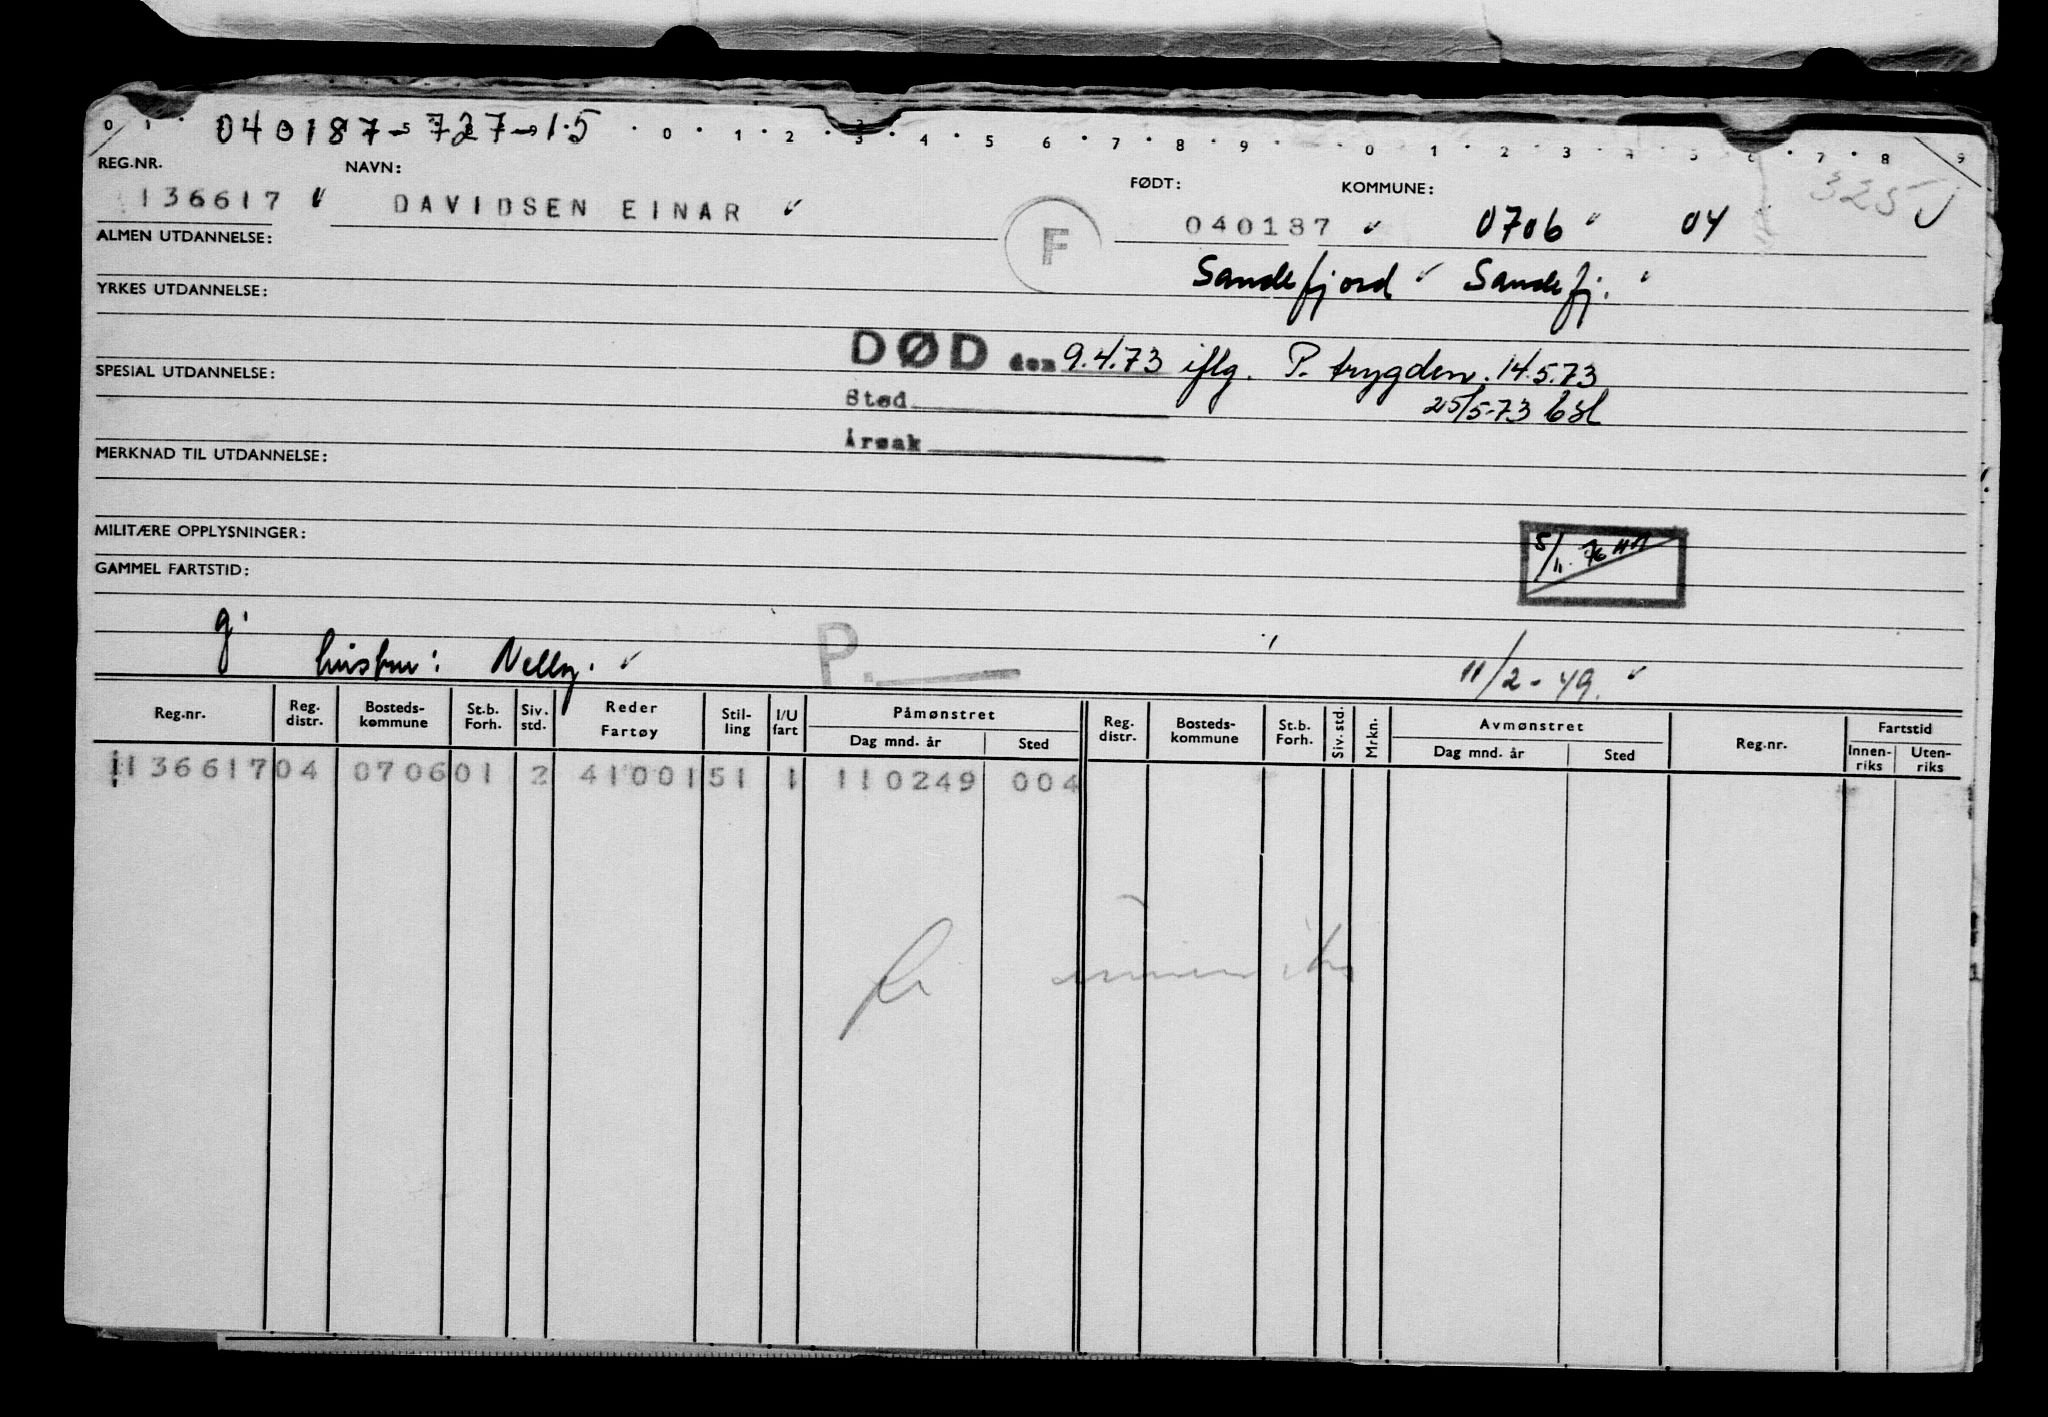 0 1 · 040187-727-15 · 0 · 1 · 2 · 3 · 4 · 5 · 6 · 7 · 8 · 9 · · 0 · 1 · 2 · 3 · 4 · 5 · 6 · 7 · 8 9
REG.NR. NAVN: FØDT: KOMMUNE: 325
136617 DAVIDSEN EINAR F 040187 0706 04
ALMEN UTDANNELSE:
Sandefjord Sandefj.
YRKES UTDANNELSE:
DØD den 9.4.73 iflg. P. trygden. 14.5.73
SPESIAL UTDANNELSE:
Sted 25/5-73
Årsak
MERKNAD TIL UTDANNELSE:
MILITÆRE OPPLYSNINGER:
5/11. 76
GAMMEL FARTSTID:
g.
hustru: Nelly. P. 11/2-49.
Reg.nr. Reg. distr. Bosteds-kommune St.b. Forh. Siv. std. Reder Fartøy Stil-ling I/U fart Påmønstret Dag mnd. år Sted Reg. distr. Bosteds-kommune St.b. Forh. Siv. std. Mrkn. Avmønstret Dag mnd. år Sted Reg.nr. Fartstid Innen-riks Uten-riks
136617 04 0706 01 2 41001 51 1 110249 004